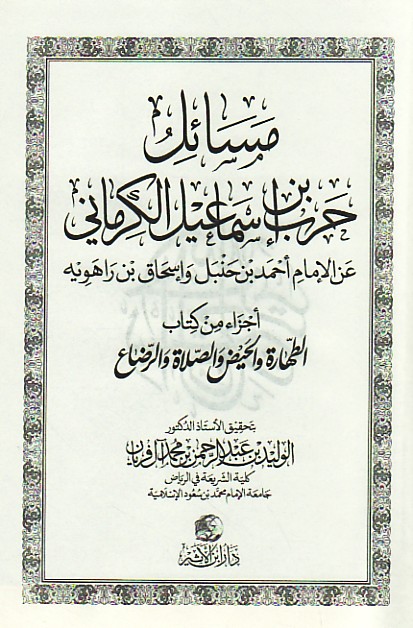 مَسَائِلُ
حَرْبِ بْنِ إِسْمَاعِيل الكَرْمَانِي
عَن الإِمَامِ أَحْمَد بْن حَنْبَل وَإِسْحَاق بْن رَاهَوِيْه
أَجْزَاء مِنْ كِتَاب
الطَّهَارَة وَالحَيْض وَالصَّلَاة وَالرَّضَاع
بتَحْقِيْق الأُسْتَاذ الدُّكتُور
الوَليْد بْن عَبْد الرَّحْمٰن بْن مُحَمَّد آل فِرِيَّان
كُلِّيَّة الشَّرِيْعَة في الرِّيَاض
جَامِعَة الإِمَام مُحَمَّد بْن سُعُود الإِسْلَامِيَّة
دَارُ ابْن الأَثِيْر